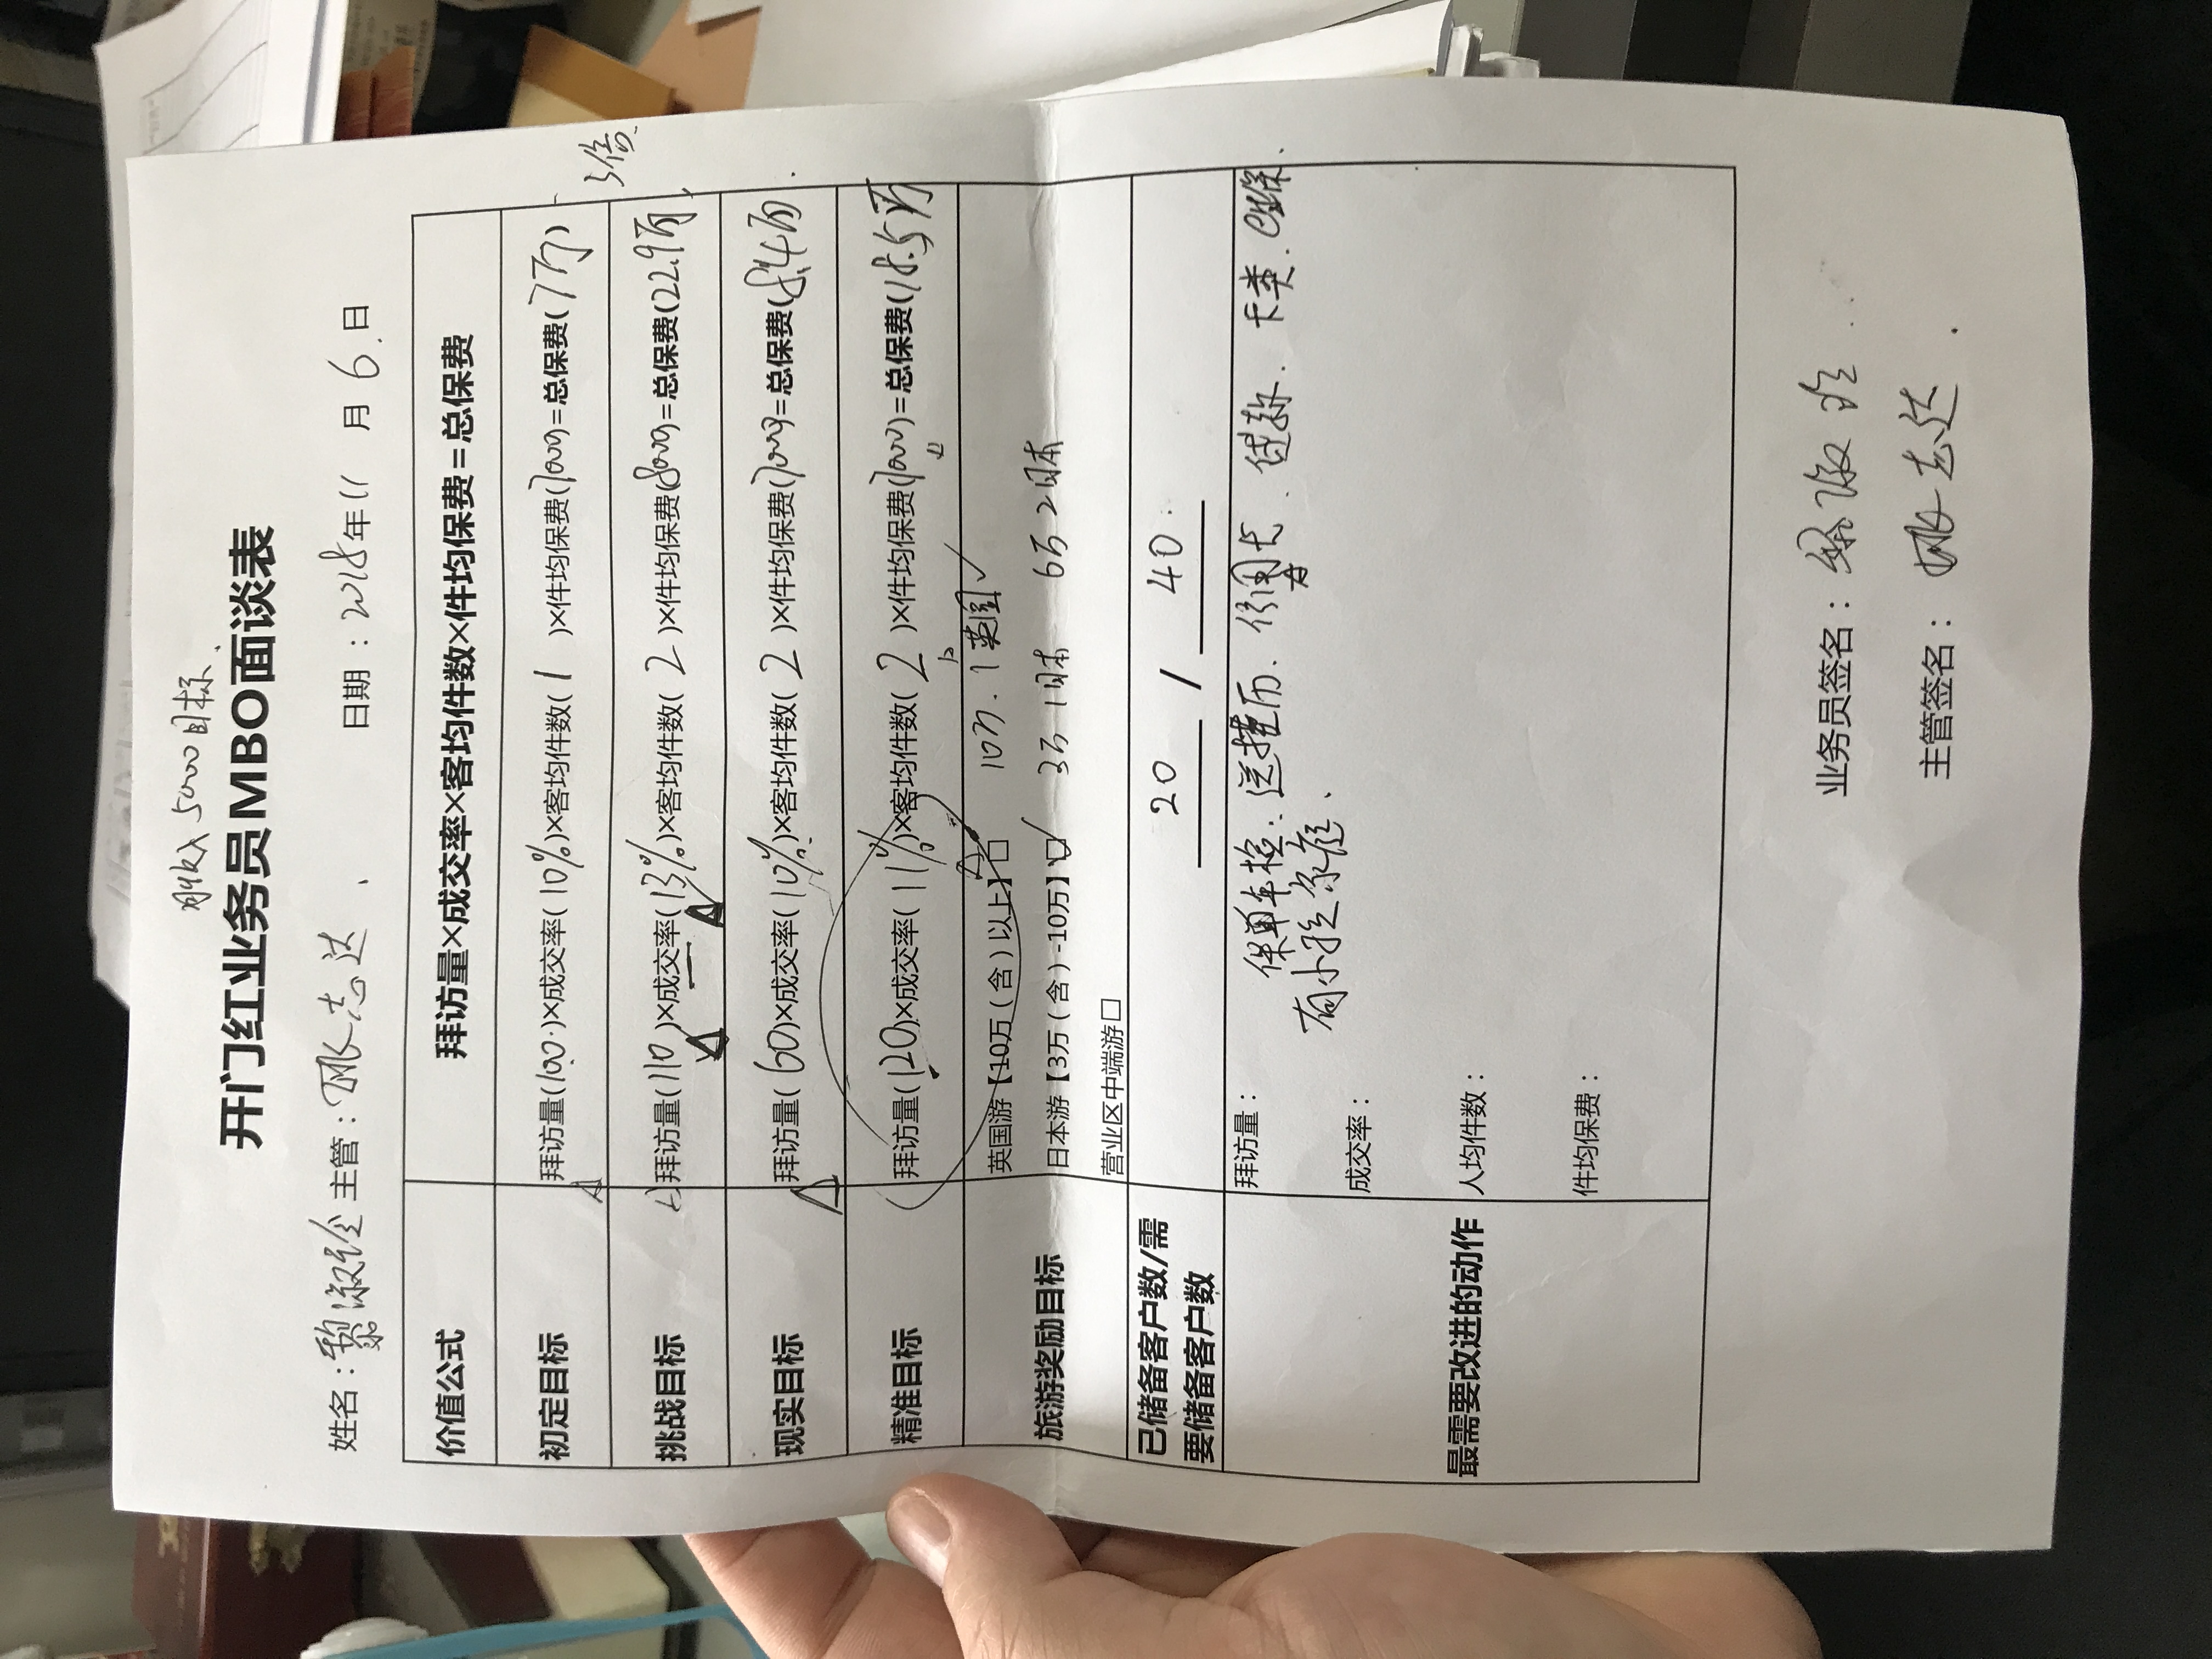 月收入5000目标
开门红业务员MBO面谈表
姓名：黎淑玲 主管：姚志达 日期：2018年11月6日
价值公式 拜访量×成交率×客均件数×件均保费=总保费
初定目标 拜访量(100)×成交率(10%)×客均件数(1)×件均保费(7000)=总保费(7万)
3倍
挑战目标 拜访量(110)×成交率(13%)×客均件数(2)×件均保费(8000)=总保费(22.9万)
现实目标 拜访量(60)×成交率(10%)×客均件数(2)×件均保费(7000)=总保费(8.4万)
精准目标 拜访量(120)×成交率(11%)×客均件数(2)×件均保费(7000)=总保费(18.5万)
旅游奖励目标
英国游【10万（含）以上】□ 10万.1英国✓
日本游【3万（含）-10万】☑ 3万1日本 6万2日本
营业区中端游□
已储备客户数/需要储备客户数 20 / 40
最需要改进的动作
拜访量： 保单年检.送挂历. 卡类.
有小孩家庭、
成交率：
人均件数：
件均保费：
业务员签名：黎淑玲
主管签名：姚志达